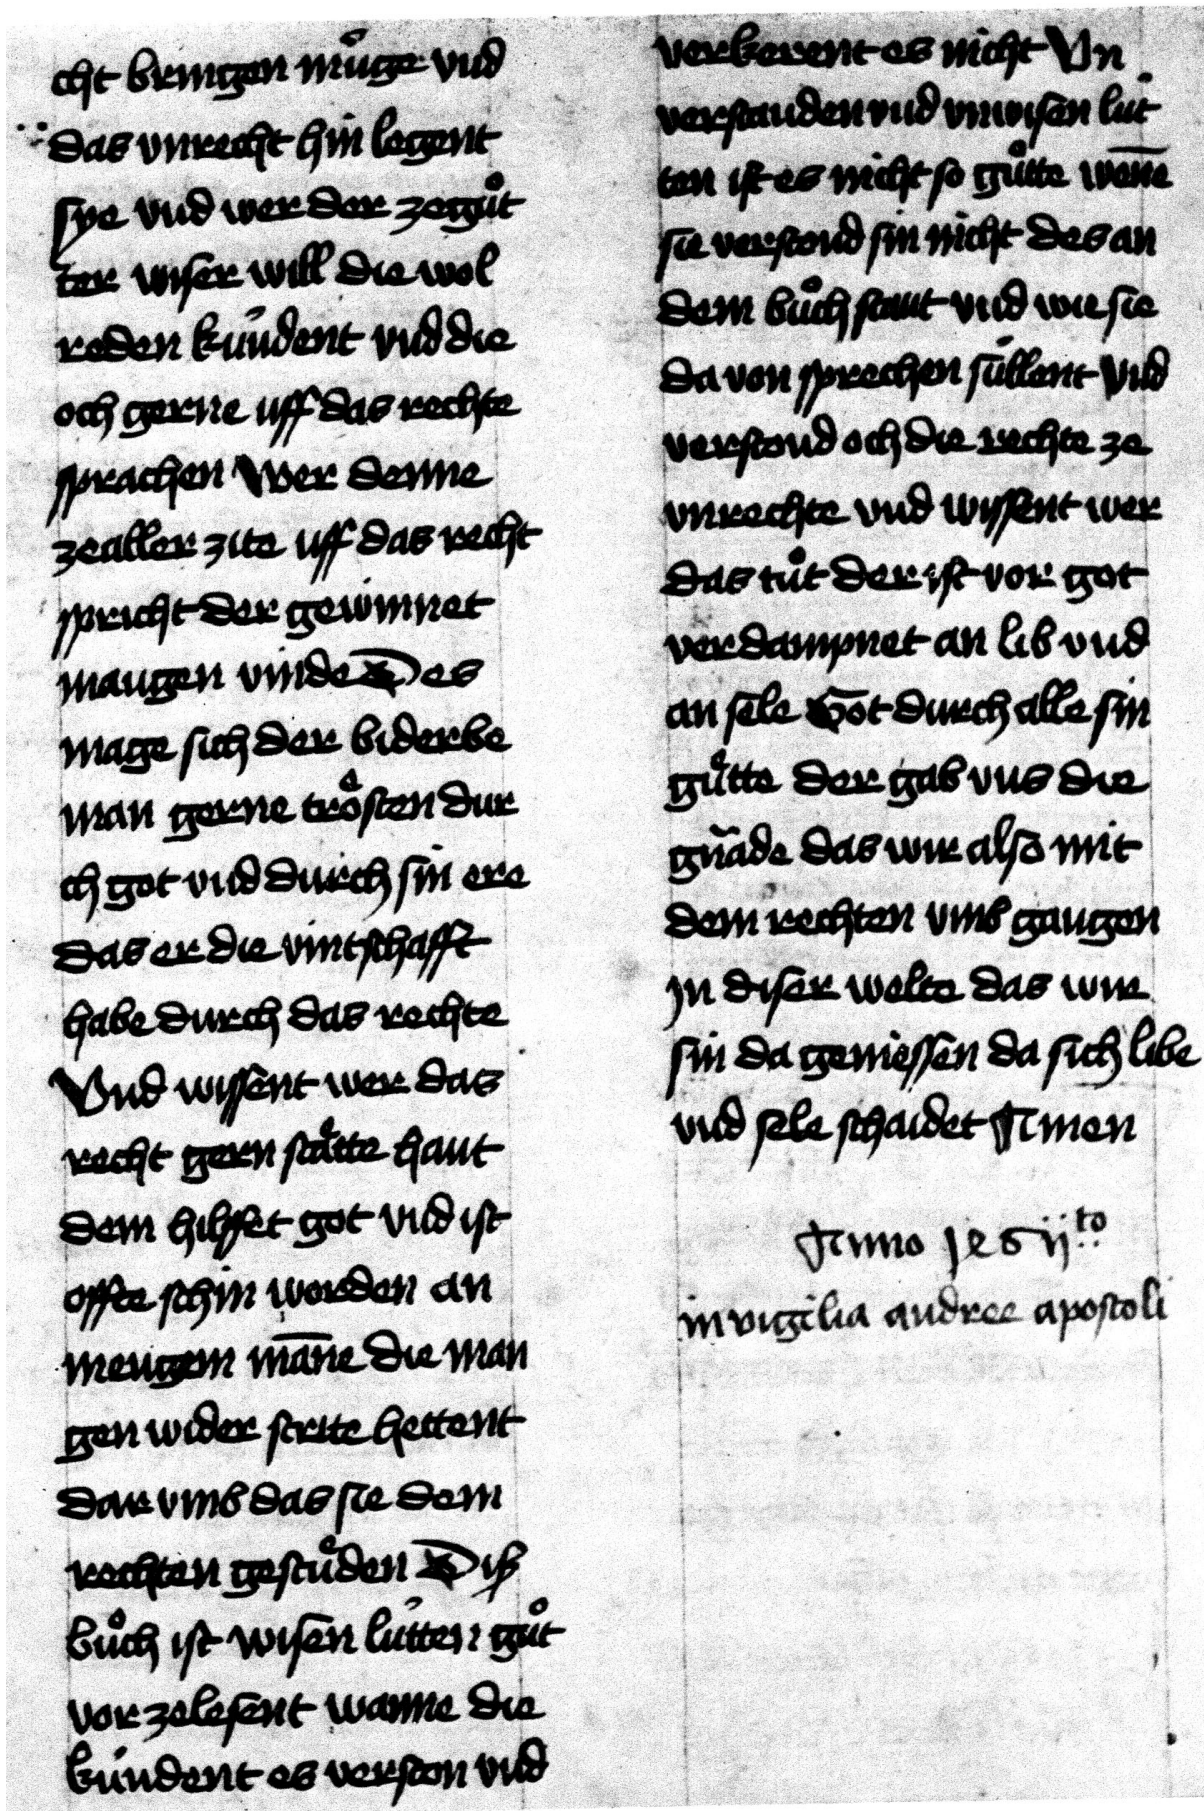 cht bringen mu̇ge vnd
das vnrecht hin legent
sye vnd wer der zegůt
ter vnser will die wol
reden kúndent vnd die
och gerne uff das rechte
sprachen Wer denne
zealler zite uff das recht
spricht der gewinnet
maugen vinde Des
mage sich der biderbe
man gerne trösten dur
ch got vnd durch sin ere
das er die vintschafft
habe durch das rechte
Vnd wissent wer das
recht gern stätte haut
dem hilffet got vnd ist
offte schin worden an
mengem mañe die man
gen wider strite hettent
dar vmb das sie dem
rechten gestůden Diß
bůch ist wisen lútten gůt
vor zelesent wanne die
kúndent es verston vnd
verkerent es nicht Vn
verstanden vnd vnwisen lút
ten ist es nicht so gůtte weñe
sie verstond sin nicht des an
dem bůch staut vnd wie sie
da von sprechen súllent Vnd
verstond och die rechte ze
vnrechte vnd wissent wer
das tůt der ist vor got
verdampnet an lib vnd
an sele Got durch alle sin
gůtte der gab vns die
gnade das wir also mit
dem rechten vmb gangen
jn diser welte das wir
sin da geniessen da sich libe
vnd sele schaidet Amen
Anno
in vigilia andree apostoli